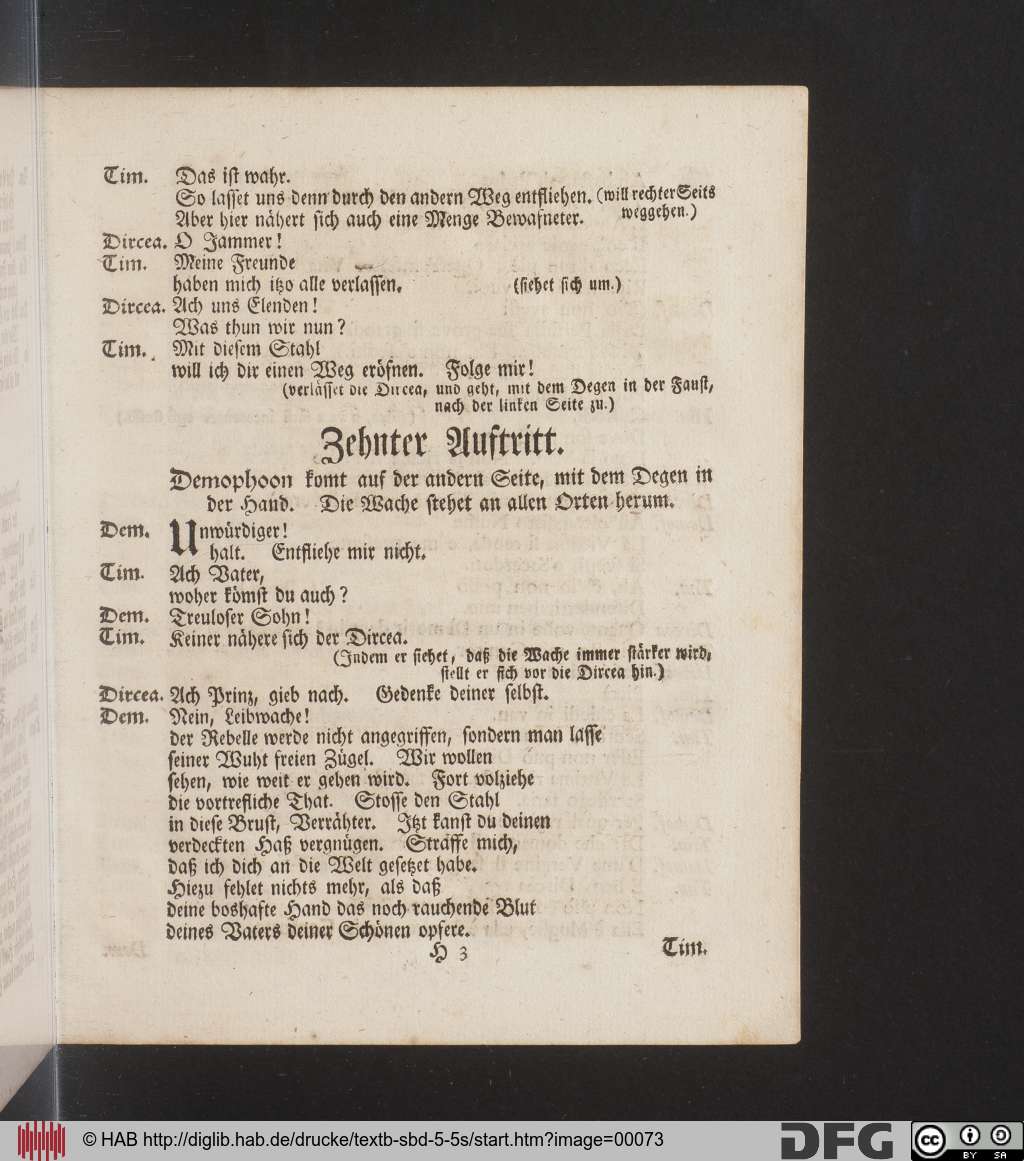 Tim. Das ist wahr.
So lasset uns denn durch den andern Weg entfliehen. (will rechter Seits
Aber hier nähert sich auch eine Menge Bewafneter. weggehen.)
Dircea. O Jammer!
Tim. Meine Freunde
haben mich itzo alle verlassen. (siehet sich um.)
Dircea. Ach uns Elenden!
Was thun wir nun?
Tim. Mit diesem Stahl
will ich dir einen Weg eröfnen. Folge mir!
(verlässet die Dircea, und geht, mit dem Degen in der Faust,
nach der linken Seite zu.)
Zehnter Auftritt.
Demophoon komt auf der andern Seite, mit dem Degen in
der Hand. Die Wache stehet an allen Orten herum.
Dem. Unwürdiger!
halt. Entfliehe mir nicht.
Tim. Ach Vater,
woher kömst du auch?
Dem. Treuloser Sohn!
Tim. Keiner nähere sich der Dircea.
(Indem er siehet, daß die Wache immer stärker wird,
stellt er sich vor die Dircea hin.)
Dircea. Ach Prinz, gieb nach. Gedenke deiner selbst.
Dem. Nein, Leibwache!
der Rebelle werde nicht angegriffen, sondern man lasse
seiner Wuht freien Zügel. Wir wollen
sehen, wie weit er gehen wird. Fort volziehe
die vortrefliche That. Stosse den Stahl
in diese Brust, Verrähter. Itzt kanst du deinen
verdeckten Haß vergnügen. Straffe mich,
daß ich dich an die Welt gesetzet habe.
Hiezu fehlet nichts mehr, als daß
deine boshafte Hand das noch rauchende Blut
deines Vaters deiner Schönen opfere.
H 3 Tim.
© HAB http://diglib.hab.de/drucke/textb-sbd-5-5s/start.htm?image=00073
DFG
cc BY SA